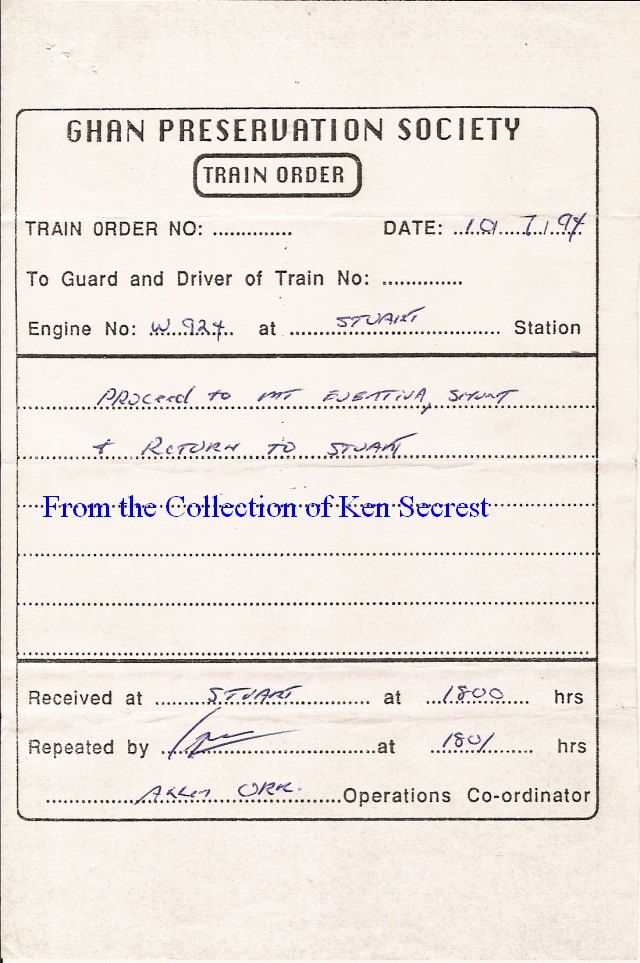 GHAN PRESERVATION SOCIETY
TRAIN ORDER
TRAIN ORDER NO: .............. DATE: 10/7/94
To Guard and Driver of Train No: ..............
Engine No: W 924 at STUART Station
PROCEED to MT
& RETURN TO STUART
From the Collection of Ken Secrest
Received at STUART at 1800 hrs
Repeated by at 1801 hrs
ORR. Operations Co-ordinator